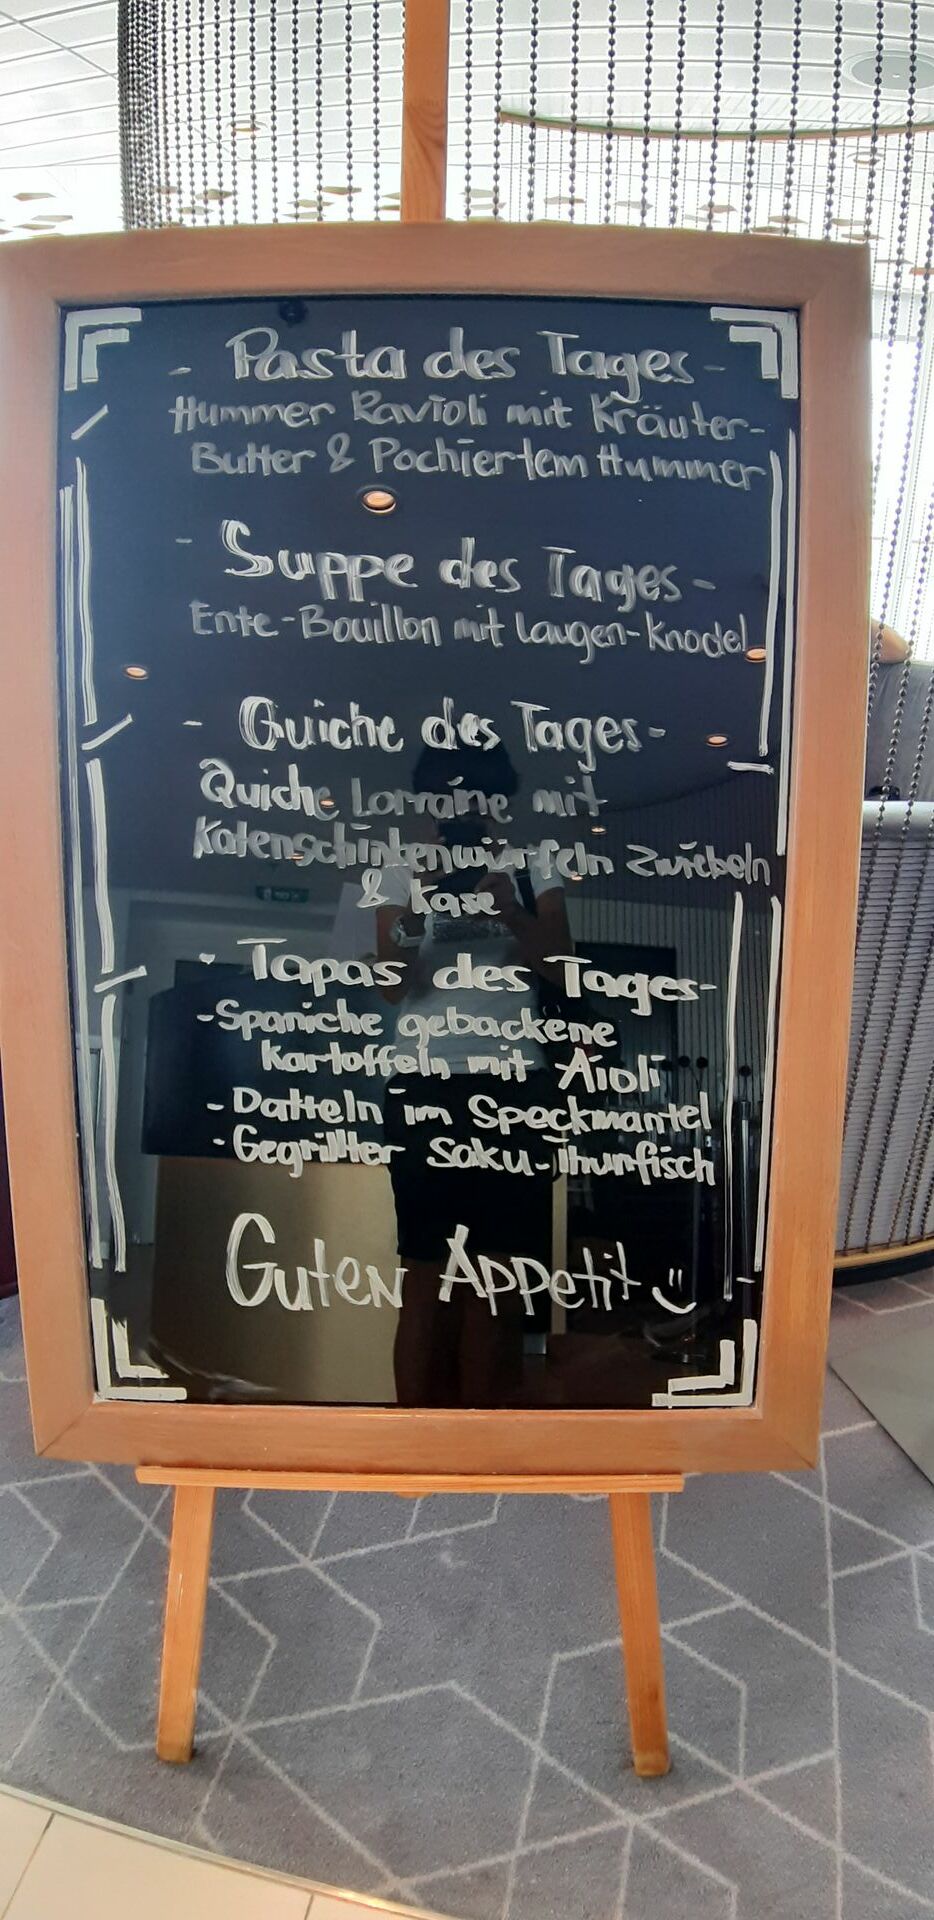 - Pasta des Tages -
Hummer Ravioli mit Kräuter-
Butter & Pochiertem Hummer
- Suppe des Tages -
Ente-Bouillon mit Laugen-Knödel
- Quiche des Tages -
Quiche Lorraine mit
Katenschinkenwürfeln Zwiebeln
& Käse
- Tapas des Tages -
- Spaniche gebackene
Kartoffeln mit Aioli
- Datteln im Speckmantel
- Gegrillter Saku-Thunfisch
Guten Appetit